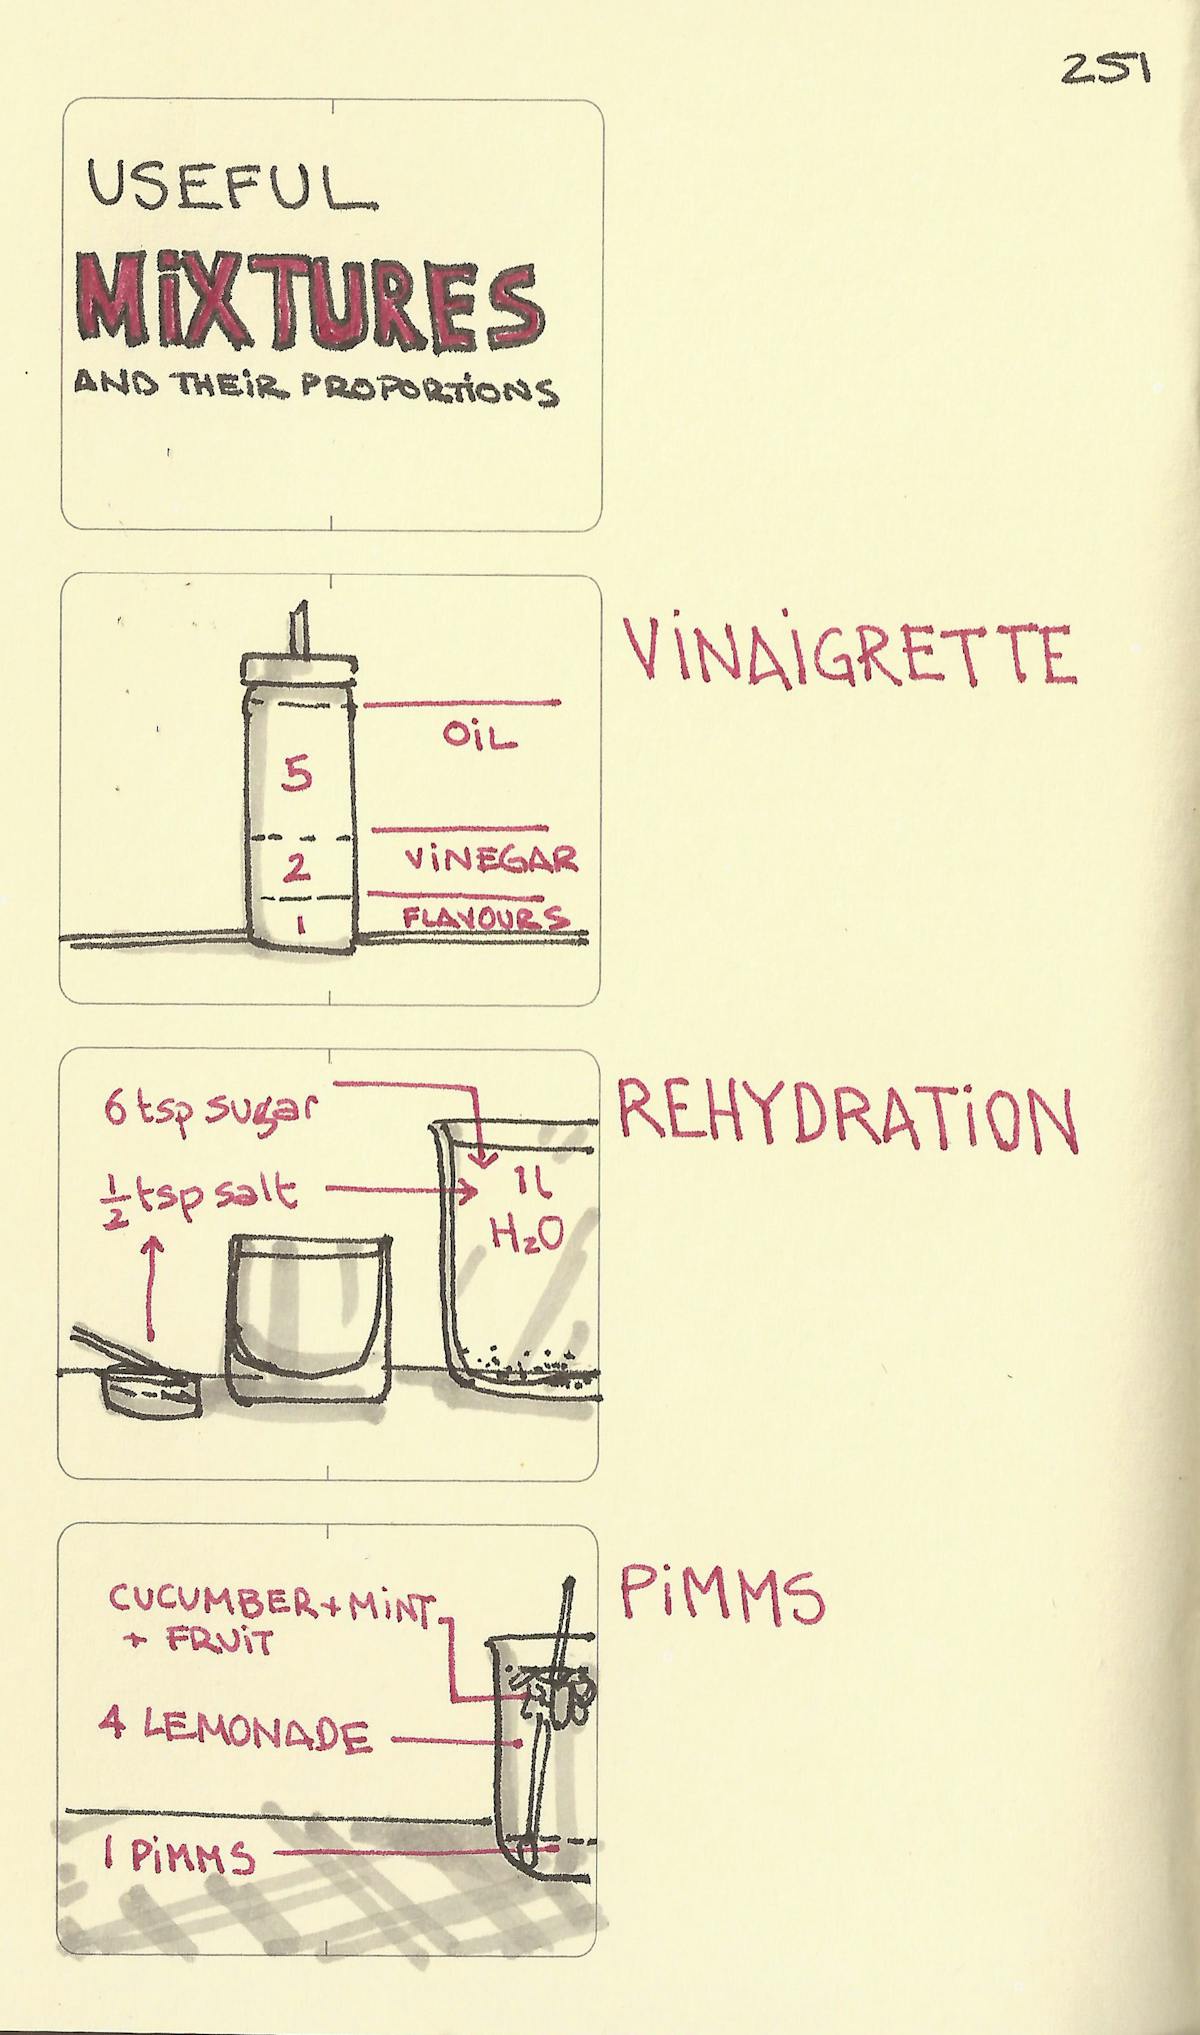 251
USEFUL
MiXTURES
AND THEiR PROPORTiONS
ViNAiGRETTE
OiL
5
ViNEGAR
2
FLAVOURS
1
REHYDRATiON
6 tsp sugar
1/2 tsp salt
1l
H₂O
PiMMS
CUCUMBER + MiNT
+ FRUiT
4 LEMONADE
1 PiMMS